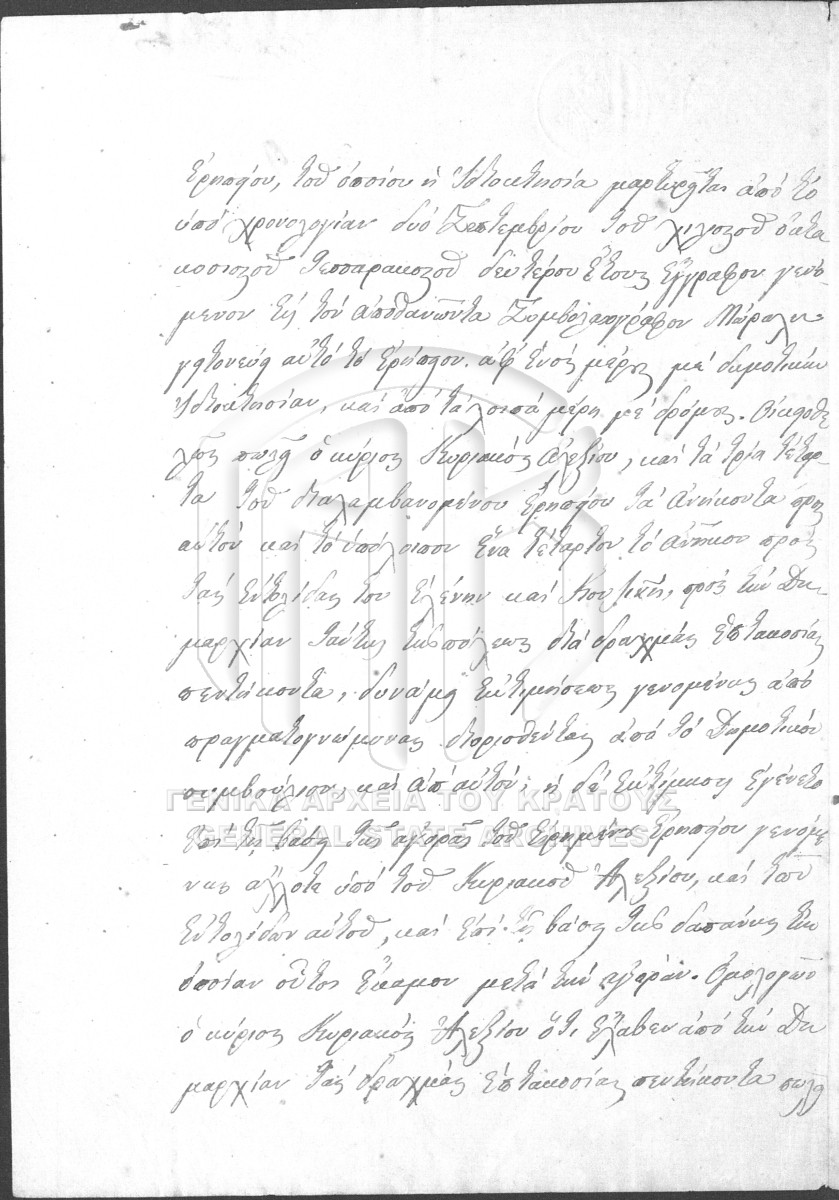 ἐρηπίου, τοῦ ὁποίου ἡ ἰδιοκτησία μαρτυρεῖται ἀπό τό
ὑπό χρονολογίαν δύο Σεπτεμβρίου τοῦ χιλιοστοῦ ὀκτα
κοσιοστοῦ τεσσαρακοστοῦ δευτέρου ἔτους ἔγγραφον γενό-
μενον εἰς τόν ἀποθανόντα Συμβολαιογράφον
γειτονεύει αὐτό τό ἐρήπιον ἀφ' ἑνός μέρους μέ δημοτικήν
ἰδιοκτησίαν, καί ἀπό τά λοιπά μέρη μέ δρόμους.
πωλεῖ ὁ κύριος Κυριακός Ἀλεξίου, καί τά τρία τέταρ-
τα τοῦ διαλαμβανομένου ἐρηπίου τά ἀνήκοντα πρός
αὐτόν καί τό ὑπόλοιπον ἕνα τέταρτον τό ἀνῆκον πρός
τάς ἐντολίδας του Ἑλένην καί πρός τήν Δη-
μαρχίαν ταύτης τῆς πόλεως διά δραχμάς ἑπτακοσίας
πεντήκοντα, δυνάμει ἐκτιμήσεως γενομένης ἀπό
πραγματογνώμονας διορισθέντας ἀπό τό Δημοτικόν
συμβούλιον, καί ἀπ' αὐτόν, ἡ δέ ἐκτίμησις ἐγένετο
ἐπί τῆς βάσει τῆς ἀγορᾶς τοῦ εἰρημένου ἐρηπίου γενομέ
νης ἄλλοτε ὑπό τοῦ Κυριακοῦ Ἀλεξίου, καί τῶν
ἐντολίδων αὐτοῦ, καί ἐπί τῇ βάσει τῆς δαπάνης τήν
ὁποίαν οὗτος ἔκαμον μετά τήν ἀγοράν. Ὁμολογῶν
ὁ κύριος Κυριακός Ἀλεξίου ὅτι ἔλαβεν ἀπό τήν Δη
μαρχίαν τάς δραχμάς ἑπτακοσίας πεντήκοντα πωλεῖ
ΓΕΝΙΚΑ ΑΡΧΕΙΑ ΤΟΥ ΚΡΑΤΟΥΣ
GENERAL STATE ARCHIVES